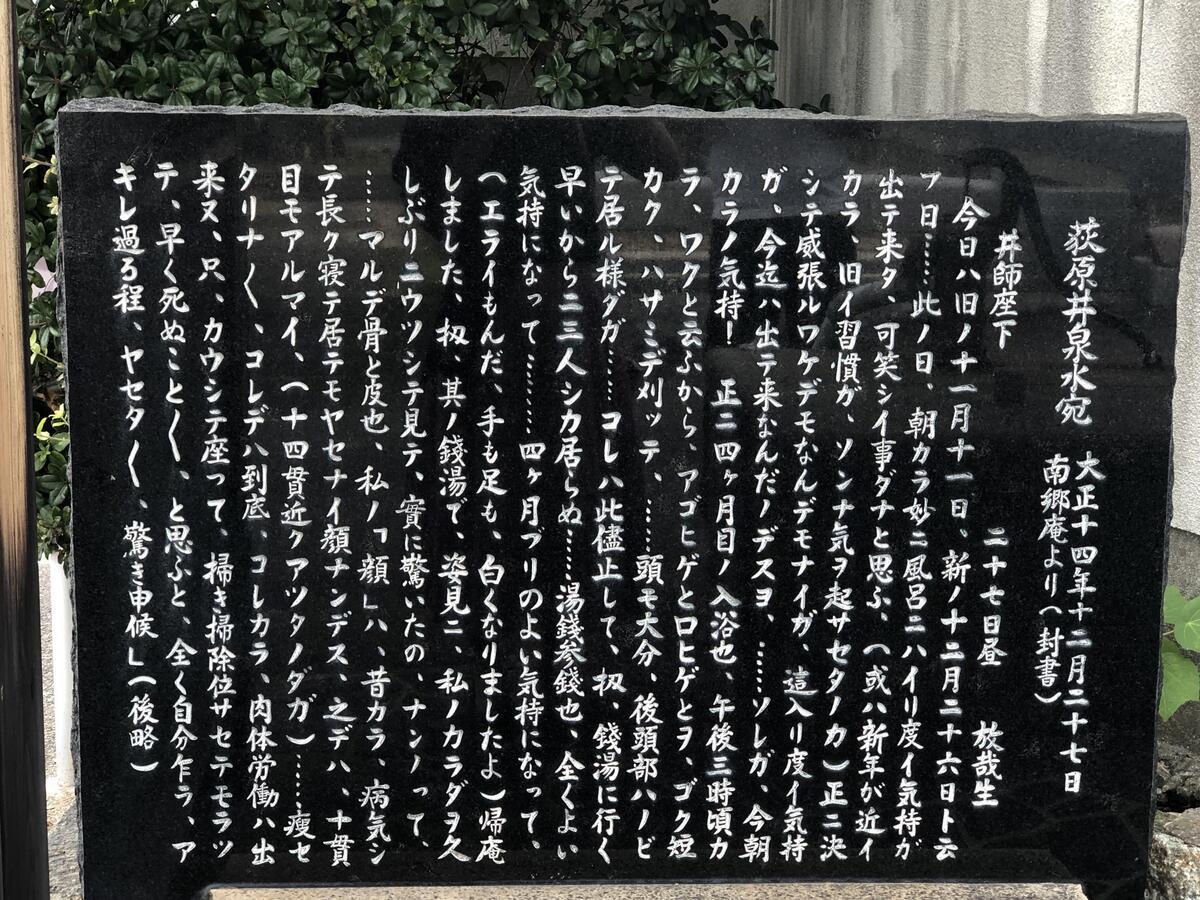 荻原井泉水宛 大正十四年十二月二十七日
南郷庵より(封書)
井師座下 二十七日昼 放哉生
今日ハ旧ノ十一月十一日、新ノ十二月二十六日ト云
フ日……此ノ日、朝カラ妙ニ風呂ニハイリ度イ気持ガ
出テ来タ、可笑シイ事ダナと思ふ、(或ハ新年が近イ
カラ、旧イ習慣が、ソンナ気ヲ起サセタノカ)正ニ決
シテ威張ルワケデモなんデモナイガ、這入リ度イ気持
ガ、今迄ハ出テ来なんだノデスヨ、……ソレガ、今朝
カラノ気持! 正ニ四ヶ月目ノ入浴也、午後三時頃カ
ラ、ワクと云ふから、アゴヒゲと口ヒゲとヲ、ゴク短
カク、ハサミデ刈ッテ、……頭モ大分、後頭部ハノビ
テ居ル様ダガ……コレハ此儘止して、扨、銭湯に行く
早いから二三人シカ居らぬ……湯銭参銭也、全くよい
気持になって………四ヶ月ブリのよい気持になって、
(エライもんだ、手も足も、白くなりましたよ)帰庵
しました、扨、其ノ錢湯で、姿見ニ、私ノカラダヲ久
しぶりニウツシテ見テ、實に驚いたの、ナンノって、
……マルデ骨と皮也、私ノ「顔」ハ、昔カラ、病気シ
テ長ク寝テ居テモヤセナイ顔ナンデス、之デハ、十貫
目モアルマイ、(十四貫近クアツタノダガ)……瘦セ
タリナ〱、コレデハ到底、コレカラ、肉体労働ハ出
来又、只、カウシテ座って、掃き掃除位サセテモラツ
テ、早く死ぬこと〱、と思ふと、全く自分乍ラ、ア
キレ過ぎる程、ヤセタ〱、驚き申候」(後略)